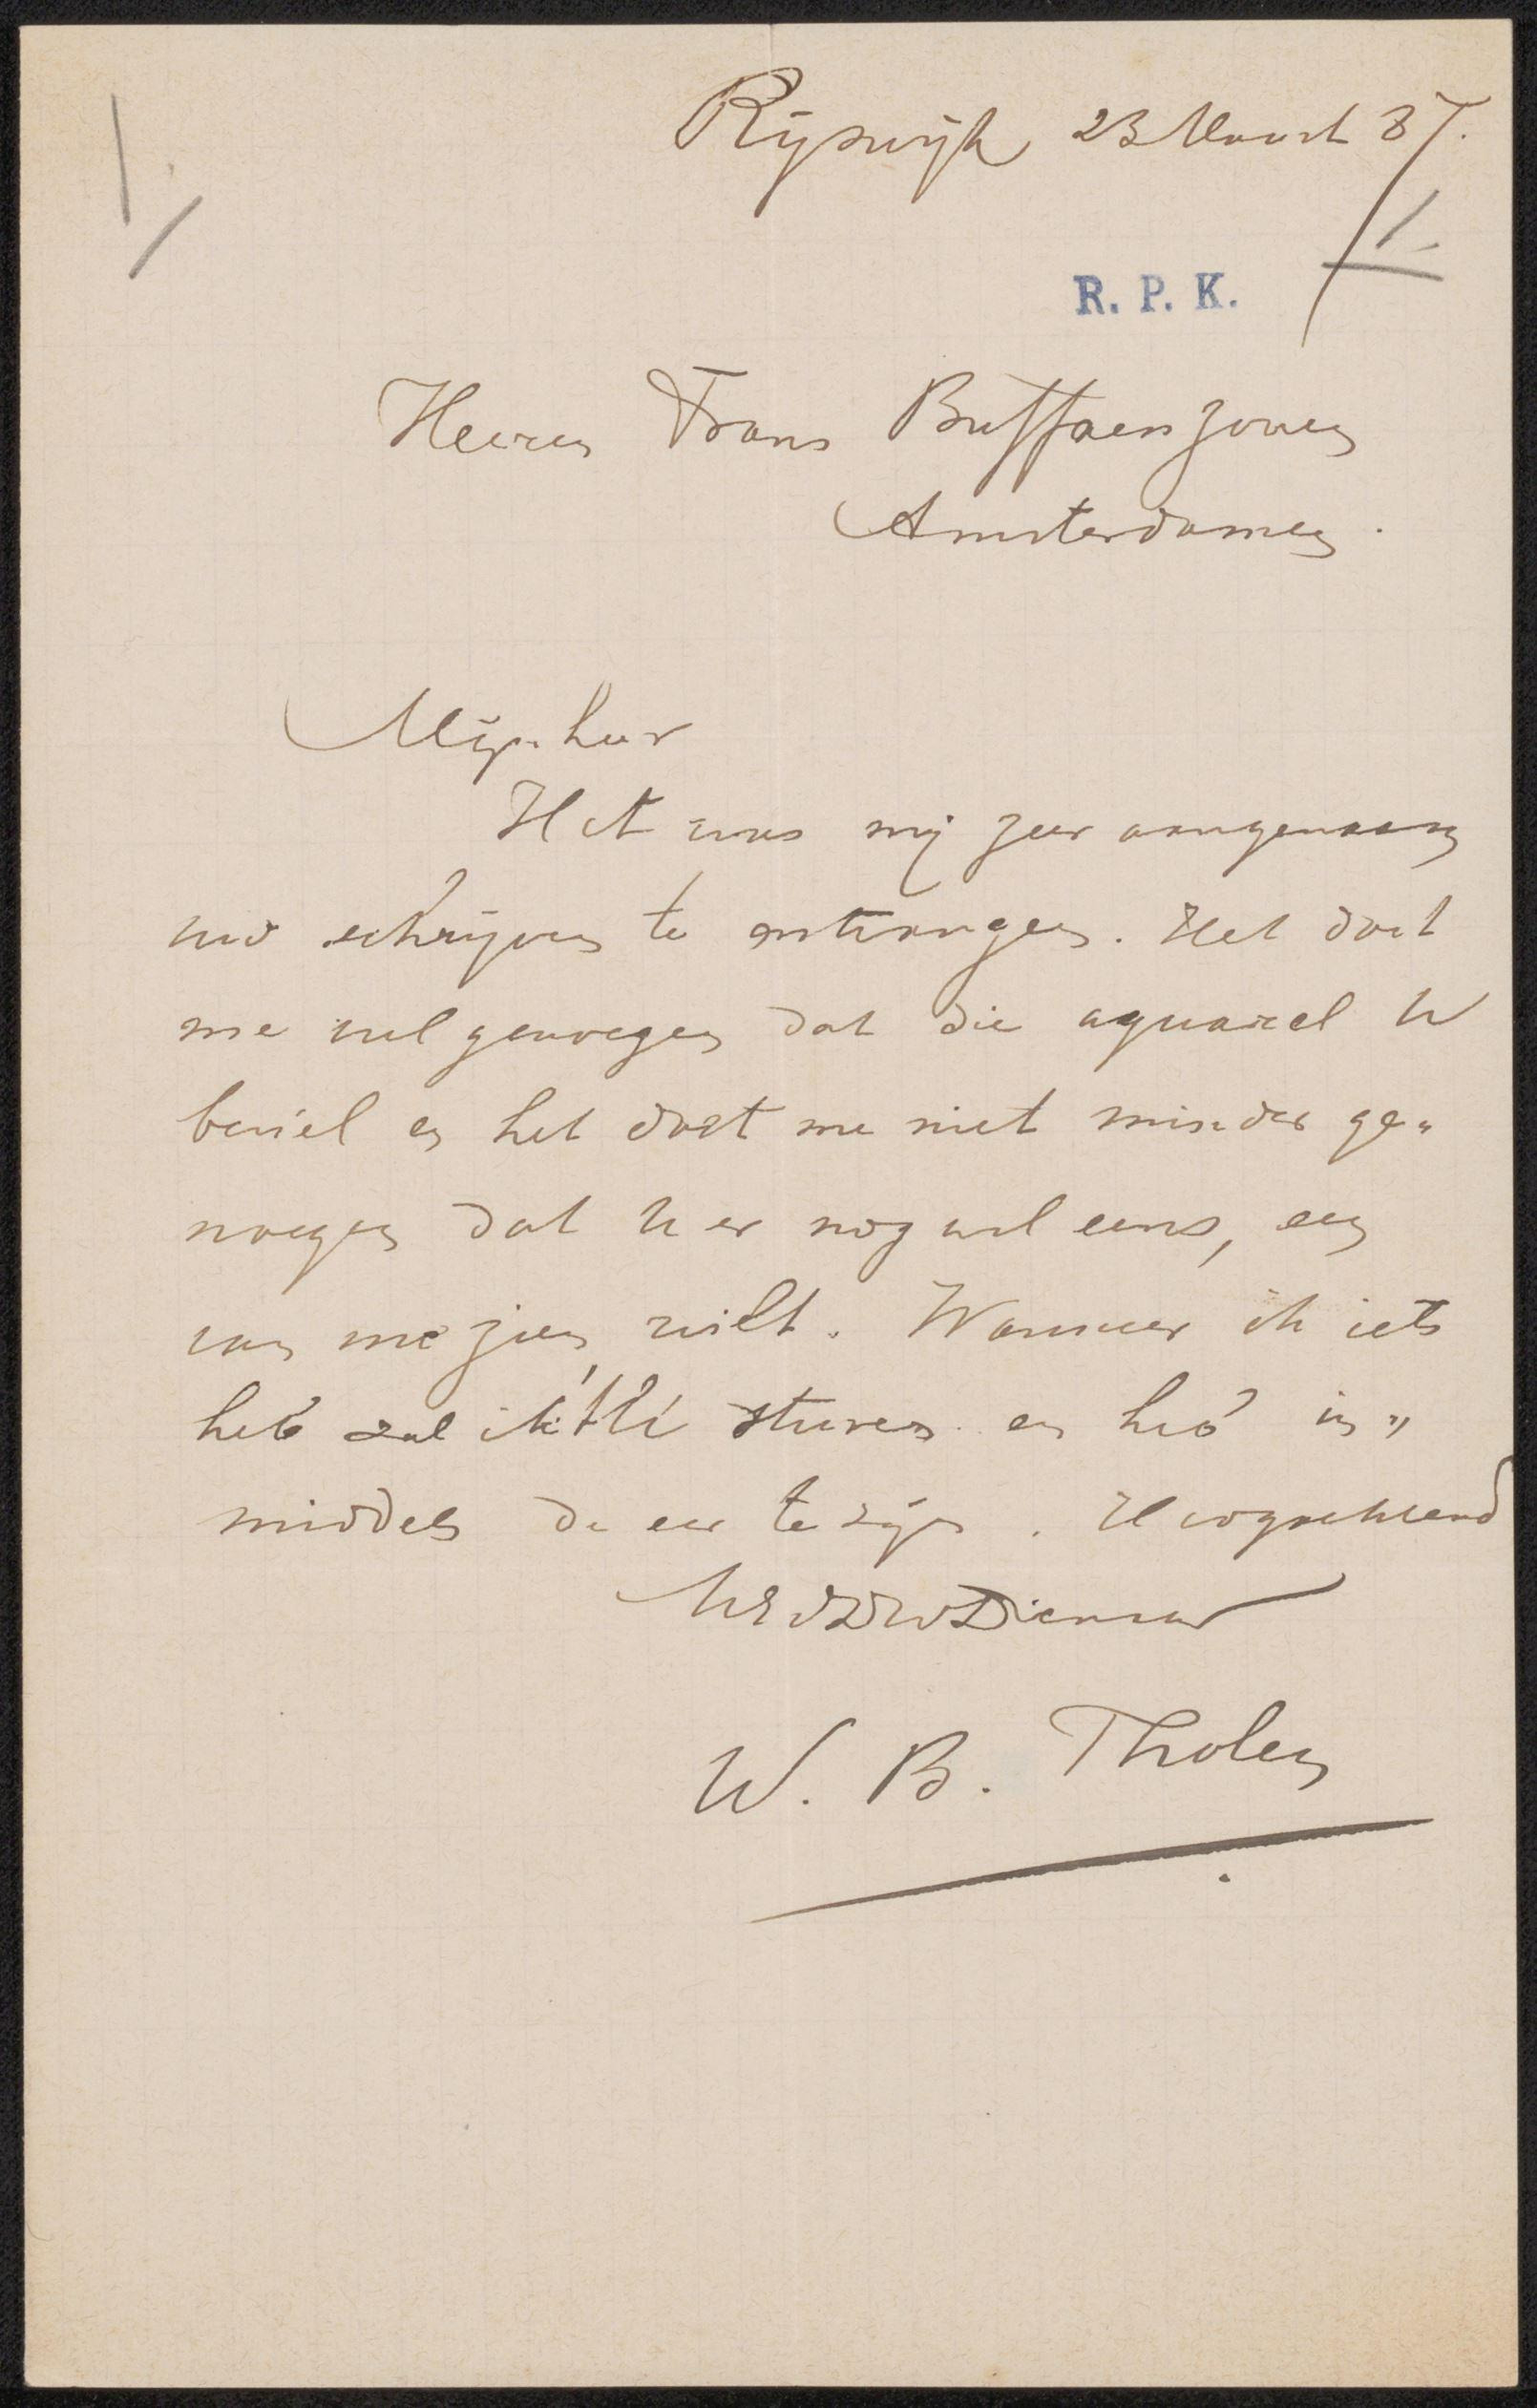 Rijswijk 23 Maart 87.
R. P. K.
Heeren Frans Buffa en zonen
Amsterdamen.
Mijnheer
Het was mij zeer aangenaam
uw schrijven te ontvangen. Het doet
me veel genoegen dat die aquarel U
beviel en het doet me niet minder ge"
noegen dat U er nog wel eens, een
van me zien wilt. Wanneer ik iets
heb zal ik 't U sturen en heb in"
middels de eer te zijn. Hoogachtend
UEdDwDienaar
W. B. Tholen